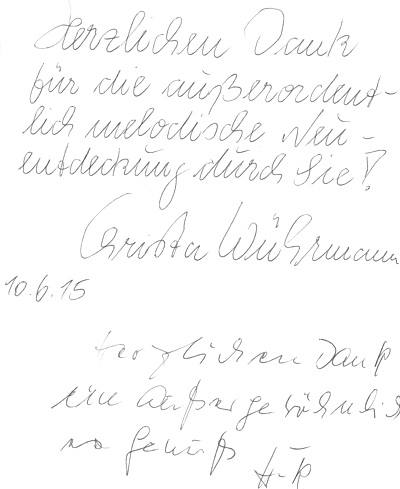 Herzlichen Dank
für die außerordent-
lich melodische Neu-
entdeckung durch Sie!
Christa Wührmann
10.6.15
Herzlichen Dank
ein außergewöhnlich
Genuß H-K